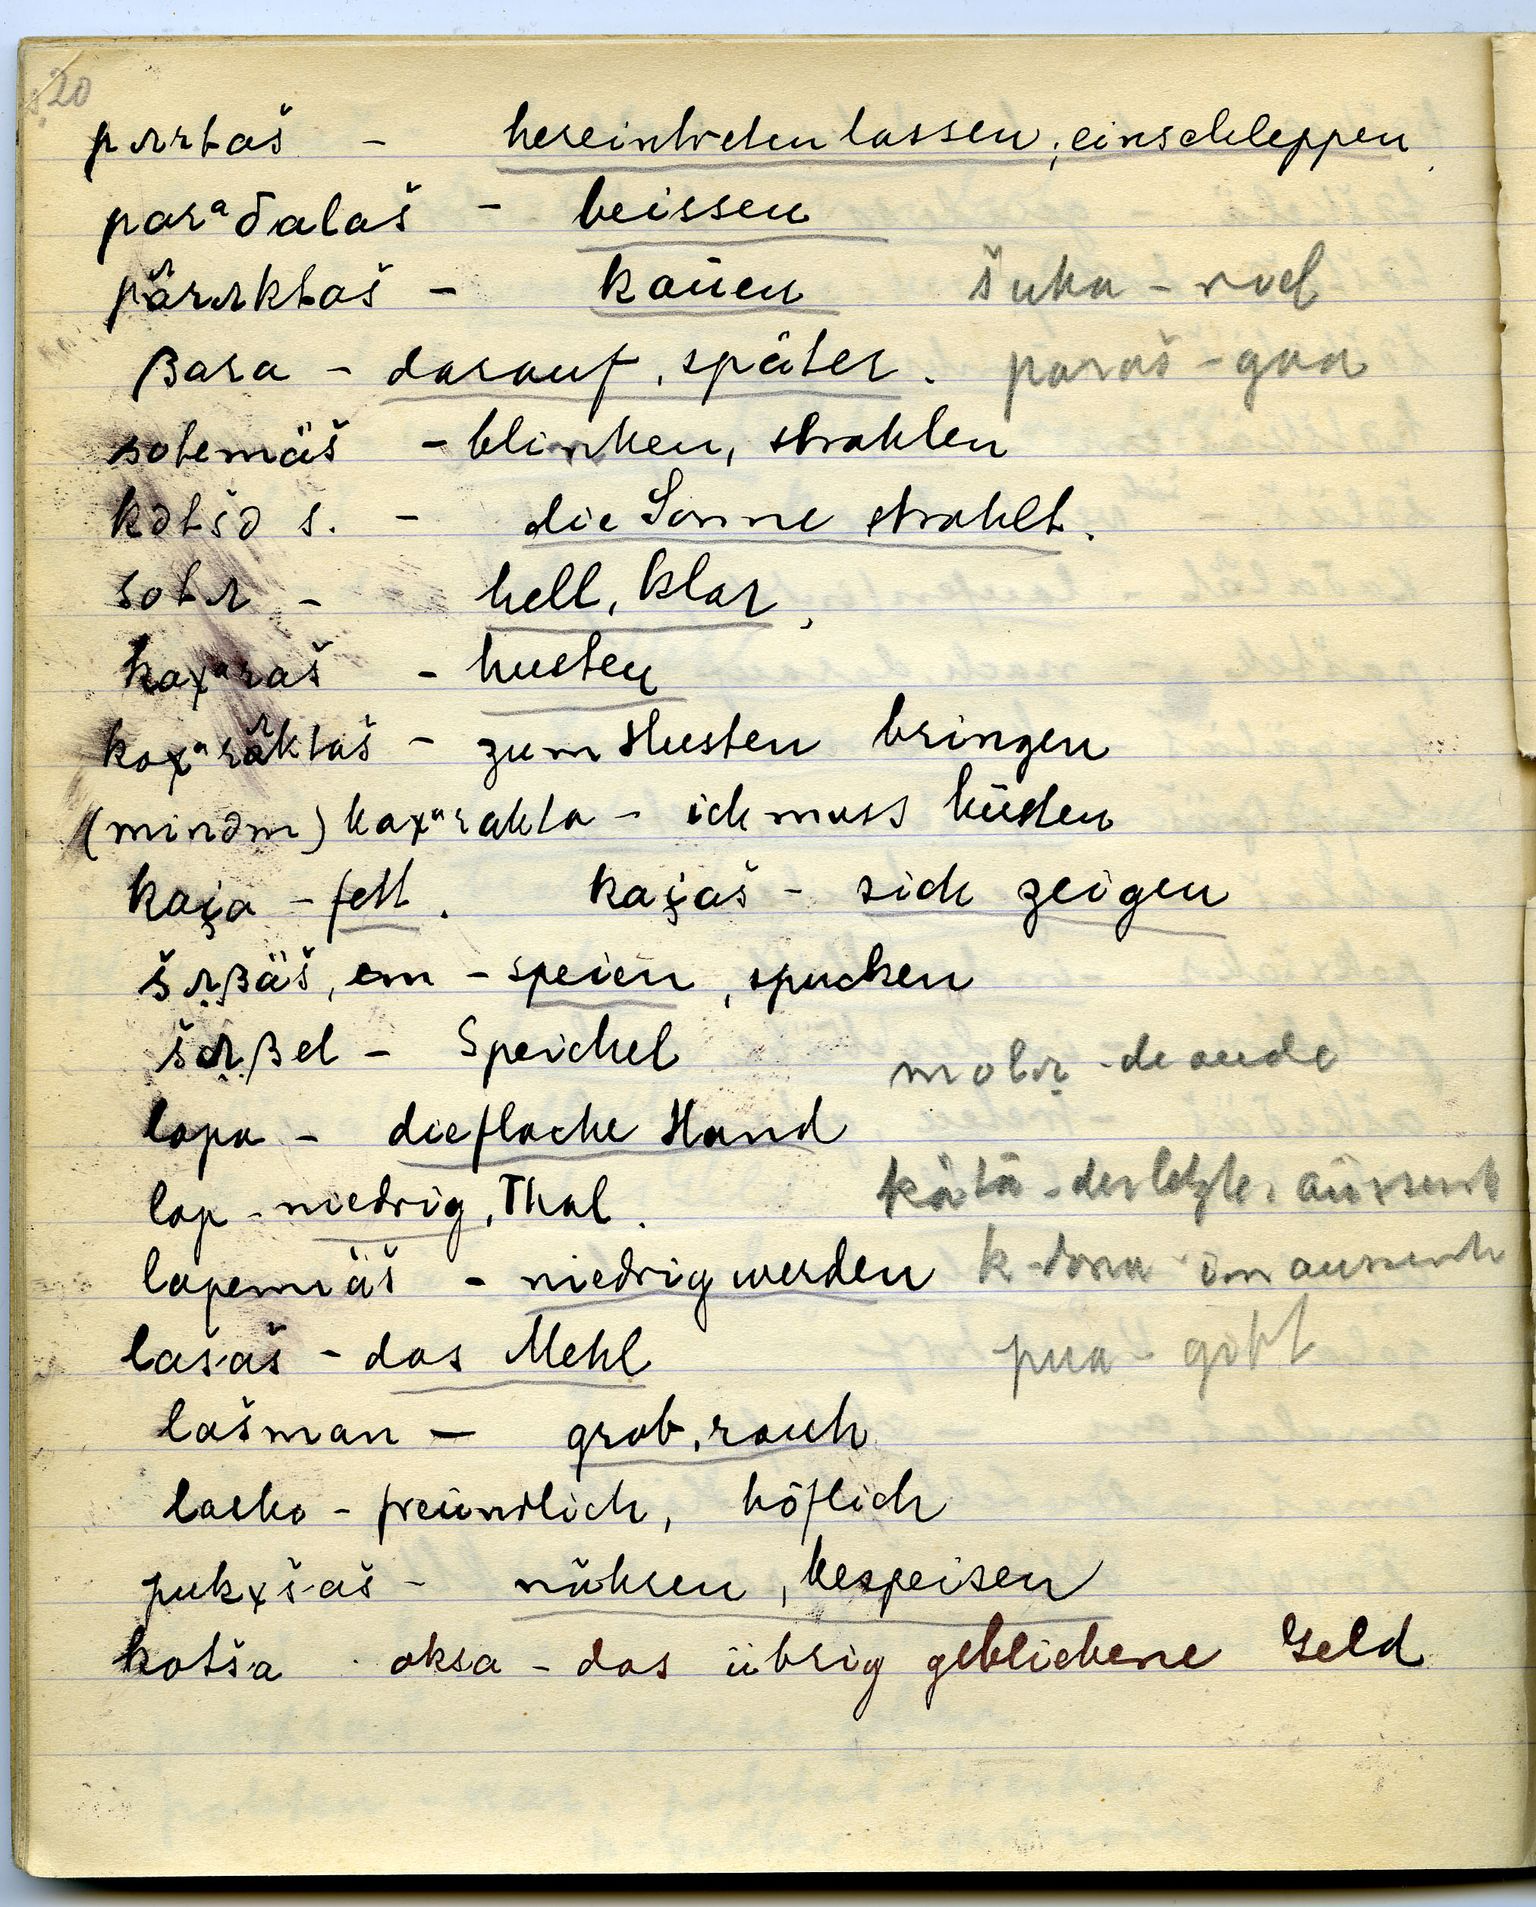 20
pɹrtaš - hereintreten lassen, einschleppen
parᵃðalaš - beissen
pärɹktaš - kauen šuka - rod
βara - darauf, später. paraš - gaa
sotemäš - blinken, strahlen
kətšə s. - die Sonne strahlt.
sotɹ - hell, klar,
kaxᵃraš - husten
kaxᵃräktaš - zum Husten bringen
(minəm) kaxᵃrakta - ich muss hüsten
kaja - fett. kajaš - sich zeigen
šɹβäš, em - speien, spucken
šɹβel - Speichel
molɹ - de ande
lapa - die flache Hand
lap - niedrig, Thal. kätä - der letzte,
lapemäš - niedrig werden k
lašaš - das Mehl pua -
lašman - grob, rauh
lasko - freundlich, höflich
pukxšaš - nähren, bespeisen
kotša oksa - das übrig gebliebene Geld